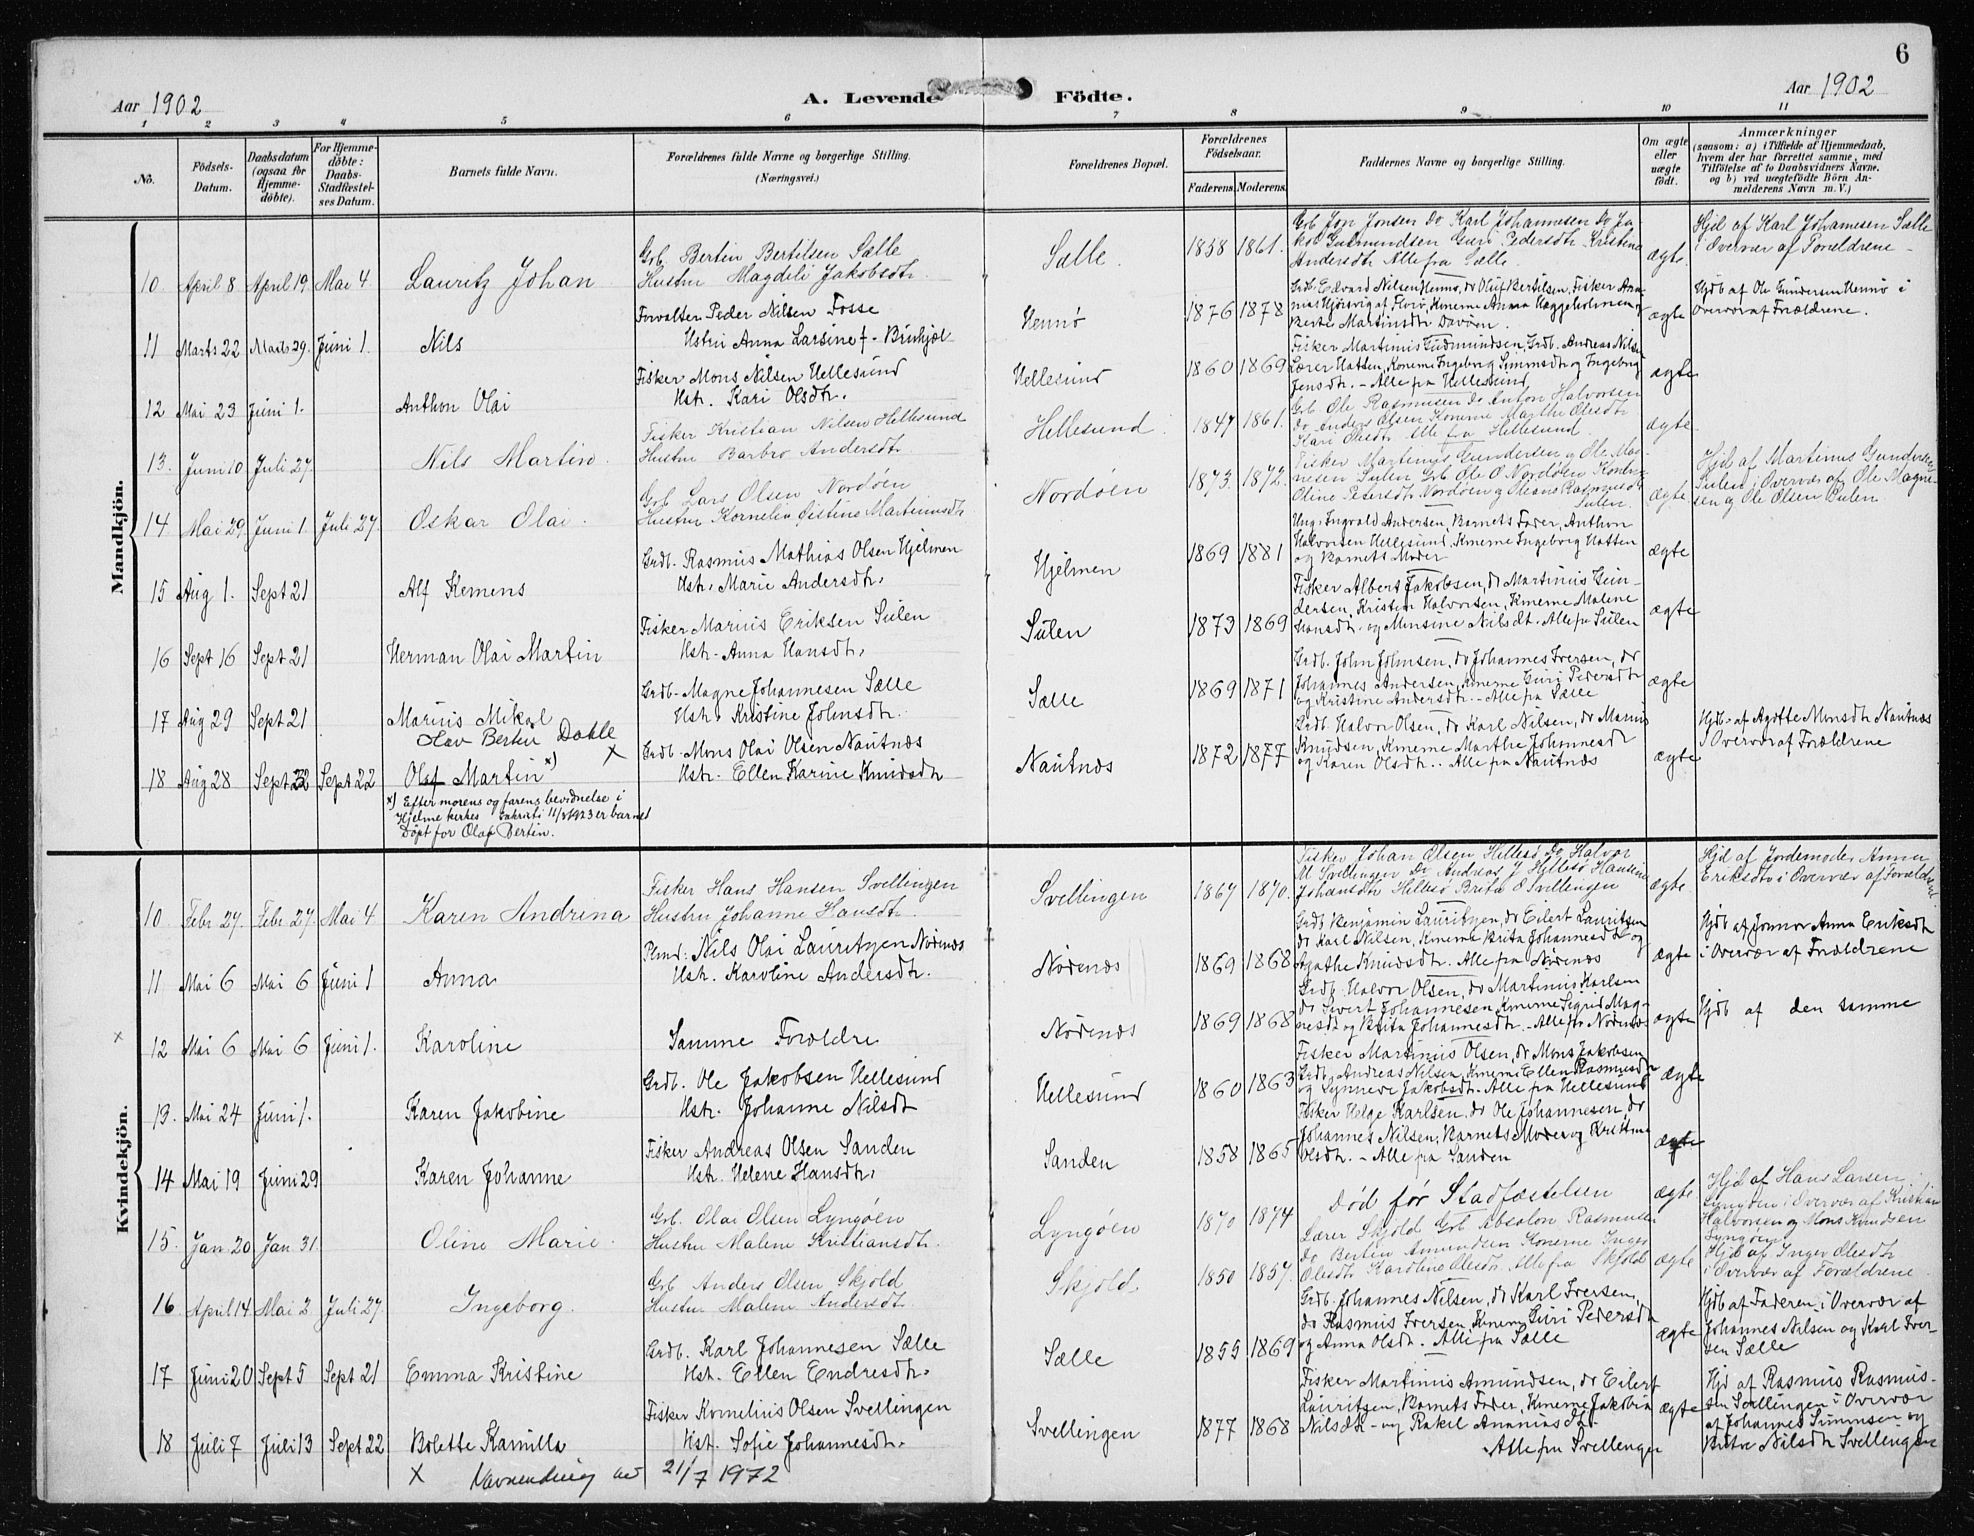 6
Aar 1902
A. Levende Födte.
Aar 1902
1 2 3 4 5 6 7 8 9 10 11
No.
Födsels-Datum.
Daabsdatum (ogsaa for Hjemme-döbte).
For Hjemme-döbte: Daabs-Stadfæstel-ses Datum.
Barnets fulde Navn.
Forældrenes fulde Navne og borgerlige Stilling.
(Næringsvei.)
Forældrenes Bopæl.
Forældrenes Födselsaar.
Faderens. Moderens.
Faddernes Navne og borgerlige Stilling.
Om ægte eller uægte födt.
Anmærkninger
(saasom: a) i Tilfælde af Hjemmedaab,
hvem der har forrettet samme, med
Tilföielse af to Daabsvidners Navne,
og b) ved uægtefödte Börn An-
melderens Navn m. V.)
Mandkjön.
10 April 8 April 19. Mai 4 Lauritz Johan
Grb. Bertin Bertilsen Sælle
Hustru Magdeli Jakobsdtr.
Sælle. 1858 1861.
Grb Jon Jonsen Do Karl Johannesen Do Ja-
kob Gudmundsen Guro Pedersdtr Kristina
Andersdtr Alle fra Sælle.
ægte.
Hjd af Karl Johannesen Sælle
i Overvær af Forældrene
11 Marts 22 Marts 29. Juni 1. Nils
Forvalter Peder Nilsen Fosse
Hstru Anna Larsine f.
Hennø 1876 1878
Grdb. Edvard Nilsen Hennø, do Oluf Bertilsen, Fisker
ægte
Hjdb af Ole Gundersen Hennø i
Overvær af Forældrene.
12 Mai 23 Juni 1. Anthon Olai
Fisker Mons Nilsen Hellesund
Hstr. Kari Olsdtr.
Hellesund 1860 1869
Fisker Martinus Gudmundsen, Grdb. Andreas Nilsen
Lærer Hatten, Konerne Ingeborg Simonsdtr og Ingeborg
Jensdtr. - Alle fra Hellesund
ægte
13. Juni 10 Juli 27. Nils Martin.
Fisker Kristian Nilsen Hellesund
Hustru Barbro Andersdtr
Hellesund. 1847 1861.
Grb Ole Rasmusen Do Anton Halvorsen
Do Anders Olsen Konerne Marthe Olesdtr
Kari Olesdtr Alle fra Hellesund
ægte
14 Mai 29. Juni 1. Juli 27. Oskar Olai.
Grb Lars Olsen Nordøen
Hustru Kornelia Martinusdtr
Nordøen 1873. 1872.
Fisker Martinus Gundersen og Ole Mag-
nesen Sulen Grb Ole O Nordøen Konerne
Oline Pedersdtr Nordøen og Rasmusdtr
Sulen.
ægte
Hjd af Martinus Gundersen
Sulen i Overvær af Ole Magne-
sen og Ole Olsen Sulen
15 Aug 1. Sept 21 Alf Klemens
Grdb. Rasmus Mathias Olsen Hjelmen
Hstr. Marie Andersdtr.
Hjelmen 1869 1881
Ung. Ingvald Andersen, Barnets Fader, Anthon
Halvorsen Hellesund, Konerne Ingeborg Hatten
og Barnets Moder
ægte
16 Sept 16 Sept 21 Herman Olai Martin
Fisker Marius Eriksen Sulen
Hstr. Anna Hansdtr.
Sulen 1873 1869
Fisker Albert Jakobsen, do Martinus Gun-
dersen, Kristen Halvorsen, Konerne Malene
Hansdtr. og Monsine Nilsdtr. Alle fra Sulen
ægte
17 Aug 29 Sept 21 Marius Mikal
Grdb. Magne Johannesen Sælle
Hstr. Kristine Johnsdtr.
Sælle 1869 1871
Grdb. John Johnsen, do Johannes Iversen, do
Johannes Andersen, Konerne Guri Pedersdtr
og Kristine Andersdtr. - Alle fra Sælle
ægte
Olav Bertin Dahle x
18 Aug 28 Sept 22 Sept 22 Olaf Martin x)
Grdb. Mons Olai Olsen Nautnæs
Hstr. Ellen Karine Knudsdtr
Nautnæs 1872 1877
Grdb. Halvor Olsen, do Karl Nilsen, do Marius
Knudsen, Konerne Marthe Johannesdtr
og Karen Olsdtr. . Alle fra Nautnæs
ægte
Hjdb. af Agathe Monsdtr Nautnæs
i Overvær af Forældrene
x) Efter morens og farens bevidnelse i
Hjelme kirkes 1923 er barnet
Døpt for Olaf Bertin.
Kvindekjön.
10 Febr 27. Febr 27. Mai 4 Karen Andrina
Fisker Hans Hansen Svellingen
Hustru Johanne Hansdtr.
Svellingen 1867 1870.
Fisker Johan Olsen Hillesø Do Halvor
M Svellingen Do Andreas J Hillesø Hansine
Johansdtr Hillesø Brita O Svellingen
ægte
Hjd af Jordemoder Anna
Eriksdtr i Overvær af Forældrene
11 Mai 6 Mai 6 Juni 1 Anna
Plmd. Nils Olai Lauritzen Nørenæs
Hstr. Karoline Andersdtr.
Nørenæs 1869 1868
Grdb Benjamin Lauritzen, do Eilert Lauritsen
do Karl Nilsen, Konerne Brita Johannesdtr og
Agathe Knudsdtr. Alle fra Nørenæs
ægte
Hjdb af Jormor Anna Eriksdtr
i Overvær af Forældrene
x
12 Mai 6 Mai 6 Juni 1. Karoline
Samme Forældre
Nørenæs 1869 1868
Grdb. Halvor Olsen, do Martinus Karlsen
do Sivert Johannesen, Konerne Sigrid Mag-
nesdtr og Brita Johannesdtr. - Alle fra Nørenæs
ægte
Hjdb af den samme
13. Mai 24 Juni 1. Karen Jakobine
Grdb. Ole Jakobsen Hellesund
Hstr. Johanne Nilsdtr
Hellesund 1860 1863
Fisker Martinus Olsen, do Mons Jakobsen
Grdb. Andreas Nilsen, Konerne Ellen Rasmusdtr
og Synneve Jakobsdtr. Alle fra Hellesund
ægte
14 Mai 19 Juni 29 Karen Johanne
Fisker Andreas Olsen Sanden
Hstr. Helene Hansdtr.
Sanden 1858 1865
Fisker Helge Karlsen, do Ole Johannesen, do
Johannes Nilsen, Barnets Moder og Kristina
Olsdtr. - Alle fra Sanden
ægte
15. Jan 20 Jan. 31. Oline Marie.
Grb. Olai Olsen Lyngøen
Hustru Malene Kristiansdtr.
Lyngøen 1870 1874
Død før Stadfæstelsen
ægte
Hjd af Hans Larsen
Lyngøen i Overvær af Kristian
Halvorsen og Mons Knudsen
Lyngøen
16 April 14 Mai 2 Juli 27. Ingeborg.
Grb Anders Olsen Skjold
Hustru Malene Andersdtr
Skjold 1850 1857.
Lærer Skjold Grb Absalon Rasmusen
Do Bertin Amundsen Konerne Inger
Olesdtr Karoline Olesdtr Alle fra Skjold
ægte
Hjd af Inger Olesdtr
i Overvær af Forældrene
17 Juni 20 Sept 5 Sept 21 Emma Kristine
Grdb. Karl Johannesen Sælle
Hst. Ellen Endresdtr.
Sælle 1855 1869
Grdb. Johannes Nilsen, do Karl Iversen,
do Rasmus Iversen, Konerne Guri Pedersdtr
og Anna Olsdtr. Alle fra Sælle
ægte
Hjdb af Faderen i Overvær af
Johannes Nilsen og Karl Iver-
sen Sælle
18 Juli 7 Juli 13 Sept 22 Bolette Kamilla
Fisker Kornelius Olsen Svellingen
Hst. Sofie Johannesdtr.
Svellingen 1877 1868
Fisker Martinus Amundsen, do Eilert
Lauritsen, Barnets Fader, Konerne Jakobia
Nilsdtr. og Rakel Ananiasdtr.
Alle fra Svellingen
ægte
Hjd af Rasmus Rasmus-
sen Svellingen i Overvær
af Johannes Simonsen og
Brite Nilsdtr Svellingen
x Navnendring av 21/7 1972